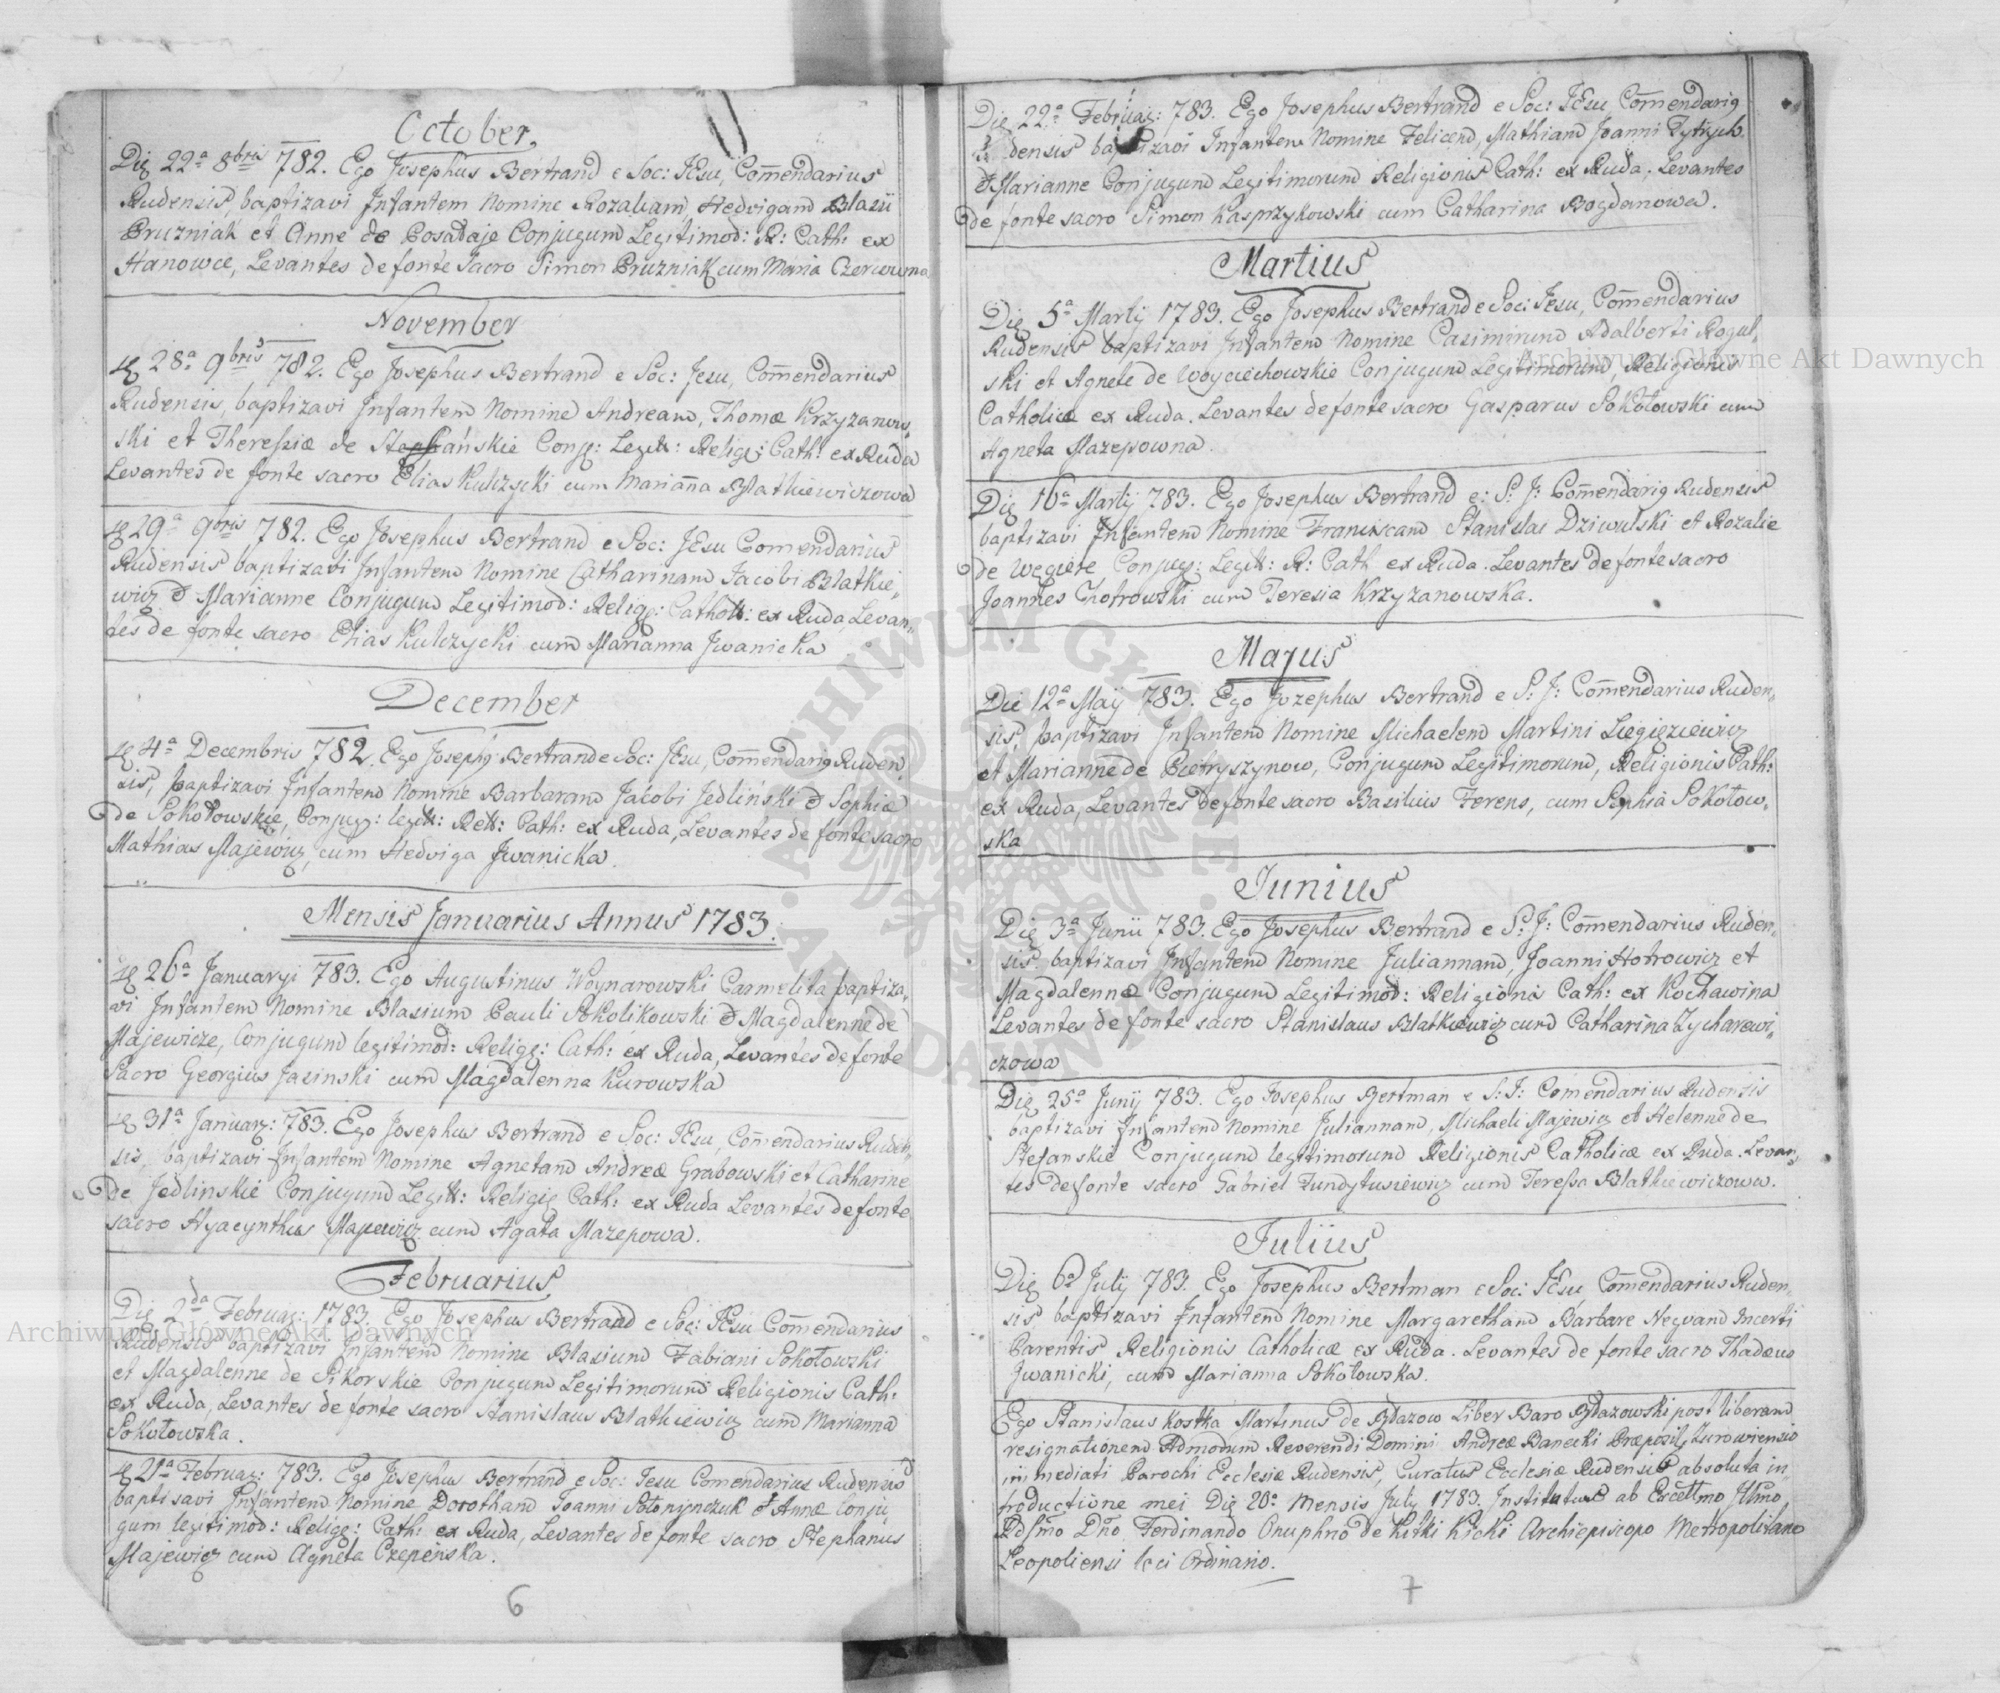 October
Die 22ª 8bris 782. Ego Josephus Bertrand e Soc: JEsu, Comendarius
Rudensis, baptizavi Infantem Nomine Rozaliam, Hedvigand Blasii
Pruzniak et Anne de Posadaje Conjugum Legitimod: R: Cath: ex
Hanowce, Levantes de fonte Sacro Simon Pruzniak cum Maria
November
28ª 9bris 782. Ego Josephus Bertrand e Soc: Jesu, Comendarius
Rudensis, baptizavi Infantem Nomine Andream, Thomæ Krzyzanow,
ski et Theressiæ de Conj: Legit: Relig: Cath: ex Ruda
Levantes de fonte sacro Elias Kulczycki cum Marianna Blatkiewiczowa
29ª 9bris 782. Ego Josephus Bertrand e Soc: JEsu Comendarius
Rudensis baptizavi Infantem Nomine Catharinam Jacobi Blatkie,
wicz & Marianne Conjugum Legitimod: Relig: Cathol: ex Ruda, Levan,
tes de fonte sacro Elias Kulczycki cum Marianna Jwanicka
December
4ª Decembris 782. Ego Joseph9 Bertrand e Soc: JEsu, Comendari9 Ruden,
sis, baptizavi Infantem Nomine Barbaram Jacobi Jedlinski & Sophiæ
de Sokołowskie, Conjug: legit: Rell: Cath: ex Ruda, Levantes de fonte sacro
Mathias Majewicz, cum Hedviga Jwanicka.
Mensis Januarius Annus 1783.
26ª Januaryi 783. Ego Augustinus Woynarowski Carmelita baptiza,
vi Infantem Nomine Blasium Pauli Sokolikowski & Magdalenne de
Majewicze, Conjugum legitimod: Relig: Cath: ex Ruda, Levantes de fonte
Sacro Georgius Jasinski cum Magdalenna Kurowska
31ª Januar: 783. Ego Josephus Bertrand e Soc: JEsu, Comendarius Ruden,
sis, baptizavi Infantem Nomine Agnetam Andreæ Grabowski et Catharine
de Jedlinskie Conjugum Legit: Religig Cath: ex Ruda Levantes de fonte
sacro Hyacynthus Majewicz cum Agata Mazepowa.
Februarius
Die 2da Februar: 1783. Ego Josephus Bertrand e Soc: JEsu Comendarius
Rudensis baptizavi Infantem Nomine Blasium Fabiani Sokołowski
et Magdalenne de Sikorskie Conjugum Legitimorum Religionis Cath:
ex Ruda, Levantes de fonte sacro Stanislaus Blatkiewicz cum Marianna
Sokołowska.
21ª Februar: 783. Ego Josephus Bertrand e Soc: Jesu Comendarius Rudensis
baptisavi Infantem Nomine Dorotham Joanni & Annæ Conju,
gum legitimod: Relig: Cath: ex Ruda, Levantes de fonte sacro Stephanus
Majewicz cum Agneta Czepinska.
6
Die 22ª Februar: 783. Ego Josephus Bertrand e Soc: JEsu Comendari9
densis baptizavi Infantem Nomine Felicem, Mathiam Joanni
& Marianne Conjugum Legitimorum Religionis Cath: ex Ruda, Levantes
de fonte sacro Simon Kasprzykowski cum Catharina Bogdanowa.
Martius
Die 5ª Martij 1783. Ego Josephus Bertrand e Soc: JEsu, Comendarius
Rudensis baptizavi Infantem Nomine Casimirum Adalberti Rogul,
ski et Agnete de Woyciechowskie Conjugum Legitimorum, Religionis
Catholicæ ex Ruda. Levantes de fonte sacro Gasparus Sokołowski cum
Agneta Mazepowna.
Die 16ª Martij 783. Ego Josephus Bertrand e: S: J: Comendari9 Rudensis
baptizavi Infantem Nomine Franciscam Stanislai Dziwulski et Rozalie
de Wegiere Conjug: Legit: R: Cath ex Ruda. Levantes de fonte sacro
Joannes Chotrowski cum Teresia Krzyzanowska.
Majus
Die 12ª Maij 783. Ego Jozephus Bertrand e S: J: Comendarius Ruden,
sis, baptizavi Infantem Nomine Michaelem Martini
et Marianne de Pietryszynow, Conjugum Legitimorum, Religionis Cath:
ex Ruda, Levantes de fonte sacro Basilius Ferens, cum Sophia Sokołow,
ska
Junius
Die 3ª Junii 783. Ego Josephus Bertrand e S: J: Comendarius Ruden,
sis baptizavi Infantem Nomine Juliannam, Joanni Hotrowicz et
Magdalennæ Conjugum Legitimod: Religionis Cath: ex Kochawina
Levantes de fonte sacro Stanislaus Blatkiewicz cum Catharina Zycharewi,
czowa
Die 25ª Junij 783. Ego Josephus Bertman e S: J: Comendarius Rudensis
baptizavi Infantem Nomine Juliannam, Michaeli Majewicz et Helenne de
Stefanskie Conjugum legitimorum Religionis Catholicæ ex Ruda. Levan,
tes de fonte sacro Gabriel Fundytusiewicz cum Teressa Blatkiewiczowa.
Julius
Die 6ª July 783. Ego Josephus Bertman e Soc: JEsu Comendarius Ruden,
sis baptizavi Infantem Nomine Margaretham Barbare Neguand Incerti
Parentis Religionis Catholicæ ex Ruda. Levantes de fonte sacro Thadæus
Jwanicki, cum Marianna Sokołowska.
Ego Stanislaus Kostka Martinus de Błazow Liber Baro Błazowski post liberam
resignationem Admorum Reverendi Domini Andreæ Banecki Præposit, Zurowiensis
immediati Parochi Ecclesiæ Rudensis, Curatus Ecclesiæ Rudensis absoluta in,
troductione mei Die 20ª Mensis July 1783. Institutus ab Excellmo Illmo
Rdssmo Dño Ferdinando Onuphrio de Kitki Kicki Archiepiscopo Metropolitano
Leopoliensi loci Ordinario.
7
Archiwum Główne Akt Dawnych
Archiwum Główne Akt Dawnych
ARCHIWUM GŁÓWNE AKT DAWNYCH